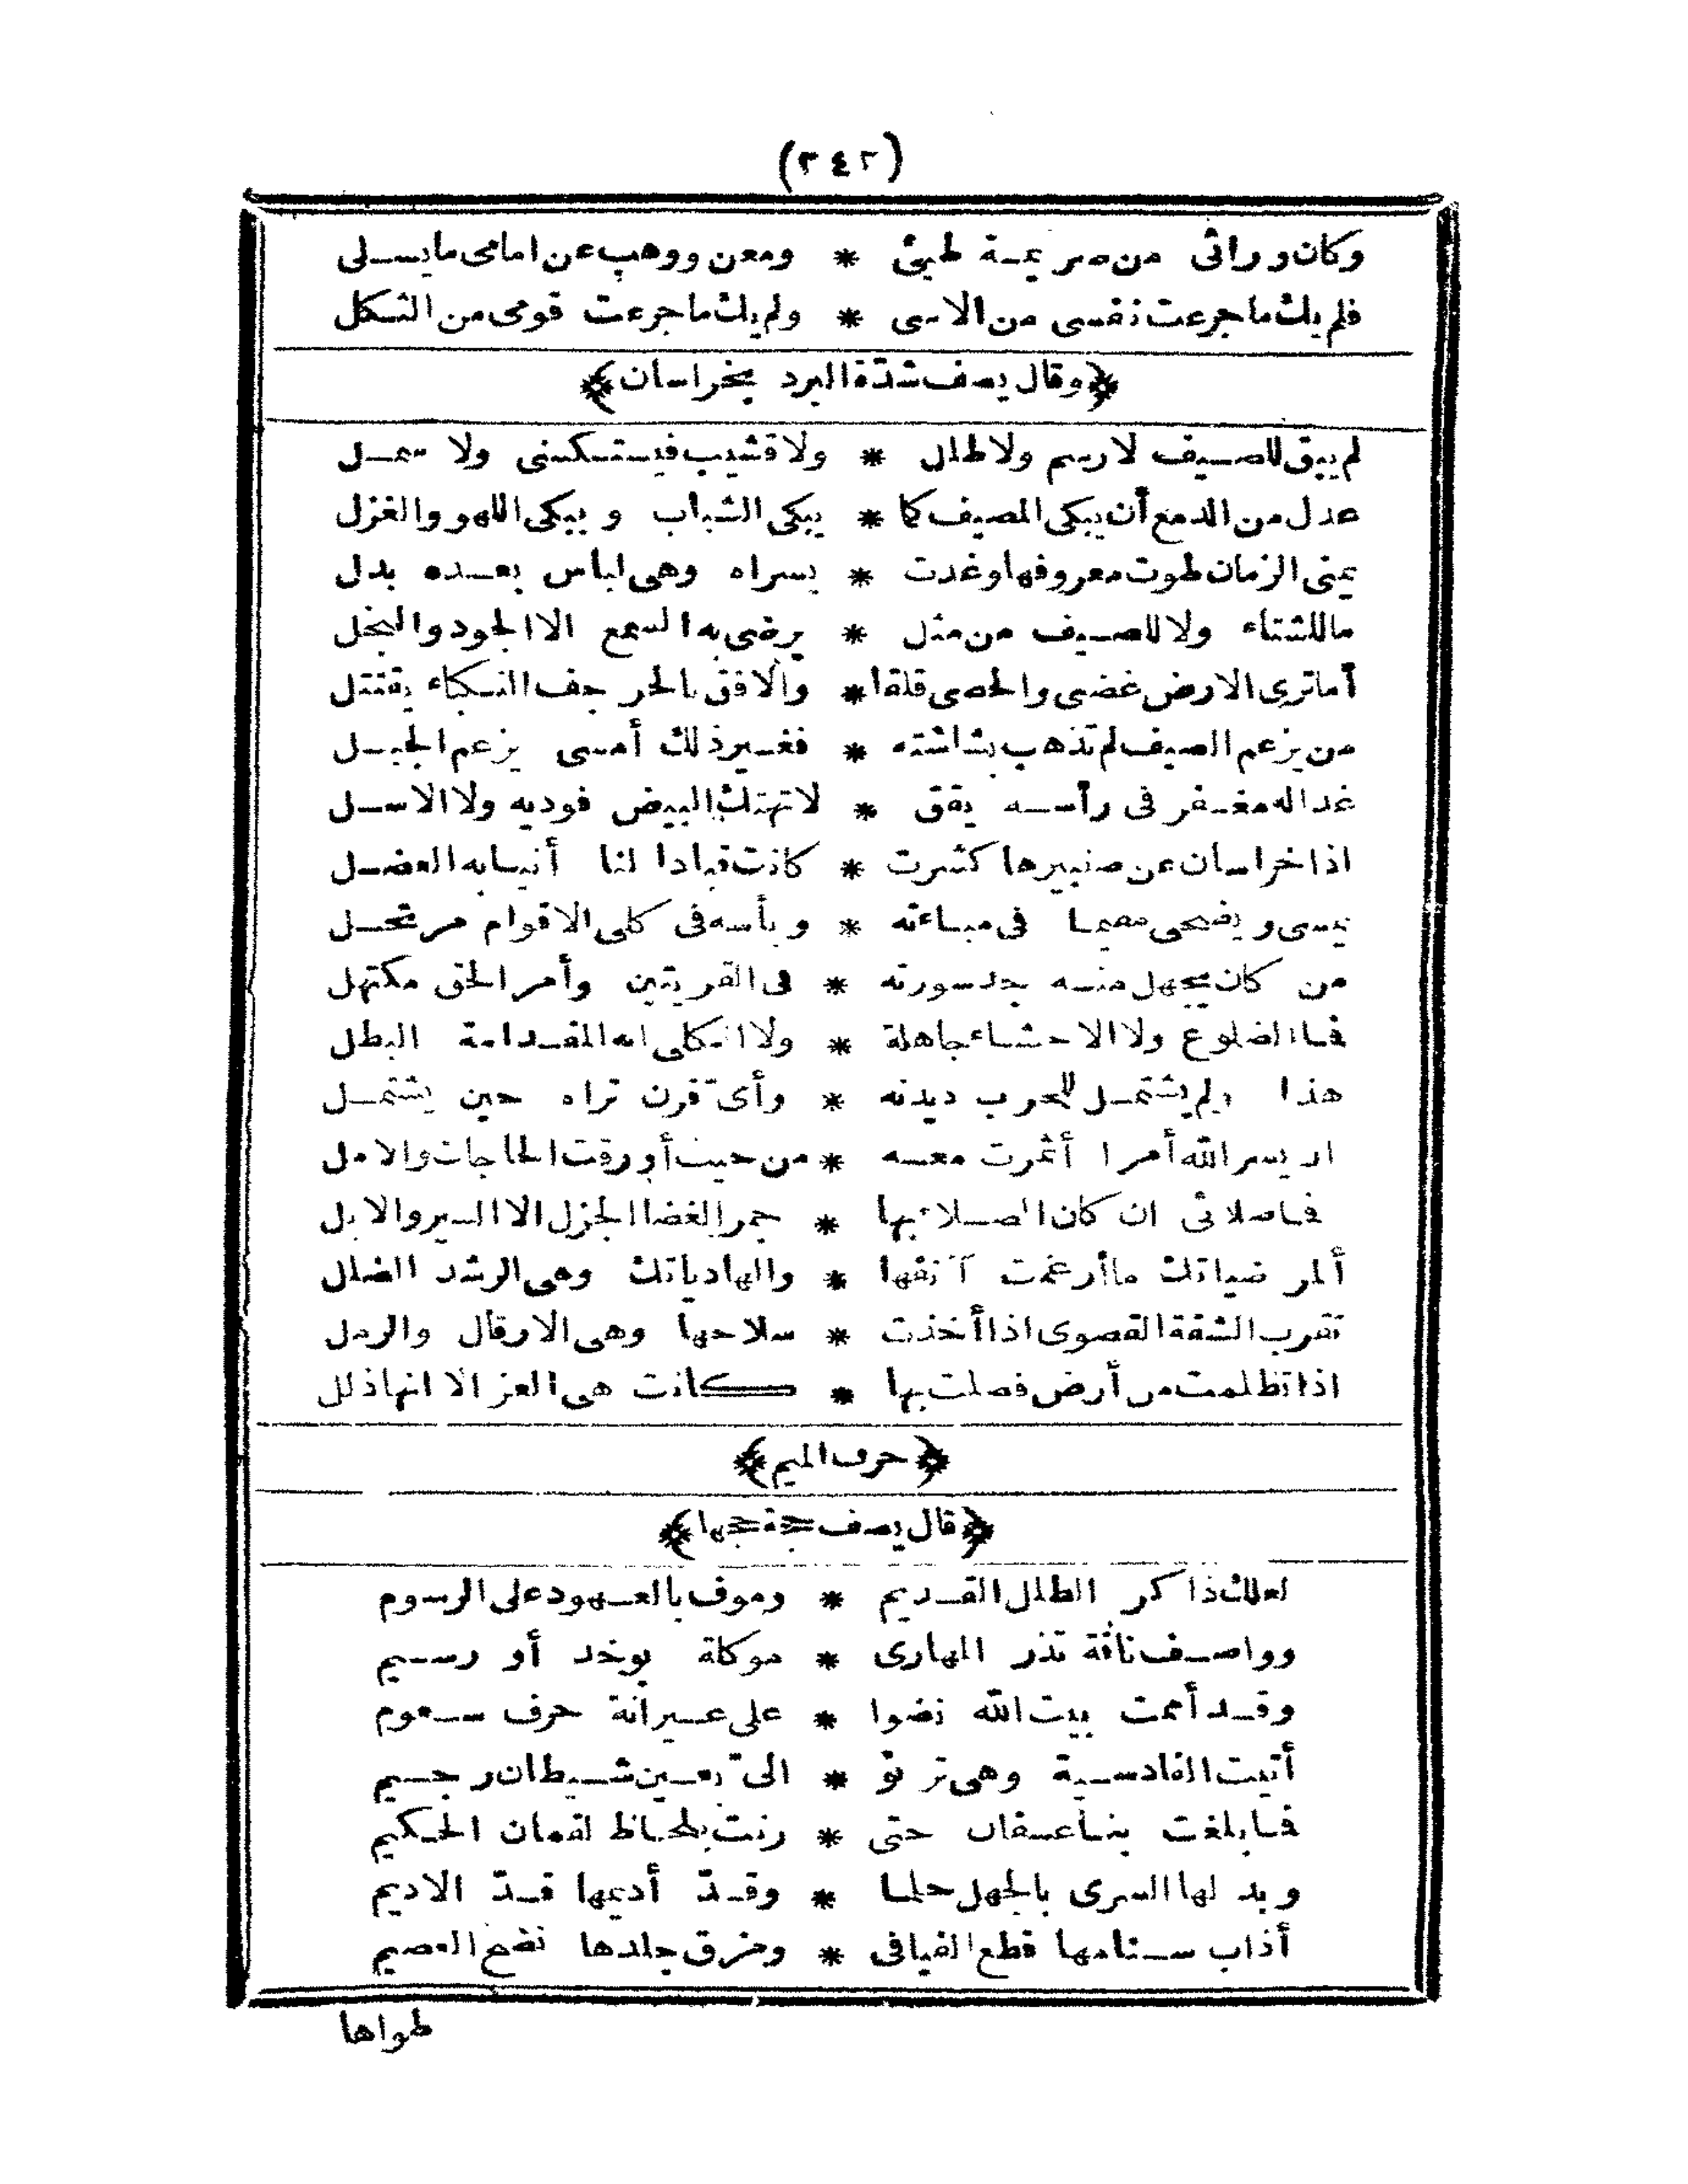 (٢٤٢)
وكان ورائى من صريمة طيئ * ومعن ووهب عن امامى ما يسلى
فلم يك ما جرعت نفسى من الاسى * ولم يك ما جرعت قومى من الثكل
﴿وقال يصف شدّة البرد بخراسان﴾
لم يبق للصيف لا رسم ولا طلل * ولا قشيب فيستكسى ولا سمل
عدل من الدمع أن يبكى المصيف كما * يبكى الشباب ويبكى اللهو والغزل
يمنى الزمان طوت معروفها وغدت * يسراه وهى لباس بعده بدل
ما للشتاء ولا للصيف من مثل * يرضى به السمع الا الجود والبخل
أما ترى الارض غضبى والحصى قلقا * والافق بالحرجف النكباء يقتتل
من يزعم الصيف لم تذهب بشاشته * فغير ذلك أمسى يزعم الجبل
غدا له مغفر فى رأسه يقق * لا تهتك البيض فوديه ولا الاسل
اذا خراسان عن صنبرها كشرت * كانت قيادا لنا أنيابه العضل
يمسى ويضحى مقيما فى مباءته * وبأسه فى كلى الاقوام مرتحل
من كان يجهل منه جد سورته * فى القريتين وأمر الحق مكتهل
فما الضلوع ولا الاحشاء جاهلة * ولا الكلى انه المقدامة البطل
هذا ولم يشتمل للحرب ديدنه * وأىّ قرن تراه حين يشتمل
ان يسر الله أمرا أثمرت معه * من حيث أورقت الحاجات والامل
فما صلائى ان كان الصلاء بها * جمر الغضا الجزل الا السير والابل
ألمرضياتك ما أرغمت آنفها * والهادياتك وهى الرشد الضلل
تقرب الشقة القصوى اذا أخذت * سلاحها وهى الارقال والرمل
اذا تظلمت من أرض فصلت بها * كانت هى العز الا انها ذلل
﴿حرف الميم﴾
﴿قال يصف حجة حجها﴾
لعلك ذاكر الطلل القديم * وموف بالعهود على الرسوم
وواصف ناقة تذر المهارى * موكلة بوخد أو رسيم
وقد أممت بيت الله نضوا * على عيرانة حرف سعوم
أتيت القادسية وهى ترنو * الىّ بعين شيطان رجيم
فما بلغت بنا عسفان حتى * رنت بلحاظ لقمان الحكيم
وبد لها السرى بالجهل حلما * وقدّ أديمها قدّ الاديم
أذاب سنامها قطع الفيافى * ومزق جلدها نضح العصيم
طواها